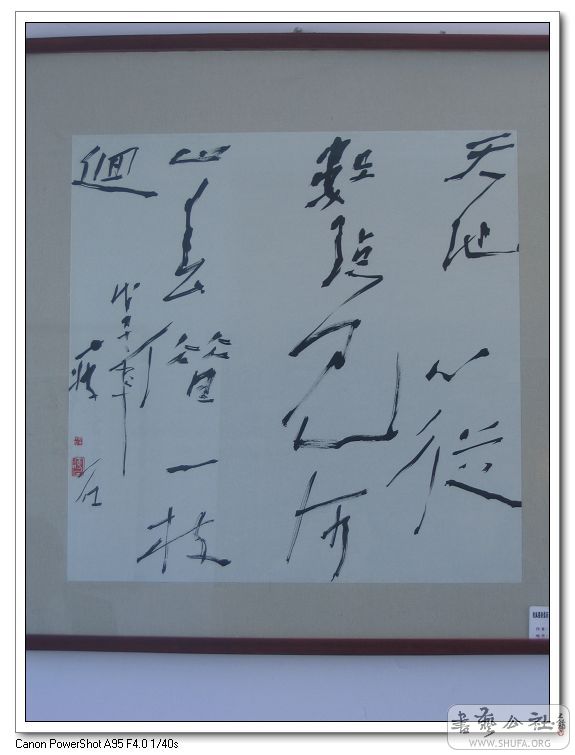 天地心從
數點見河
山春借一枝
迴
戊子年
書藝公社
WWW.SHUFA.ORG
Canon PowerShot A95 F4.0 1/40s